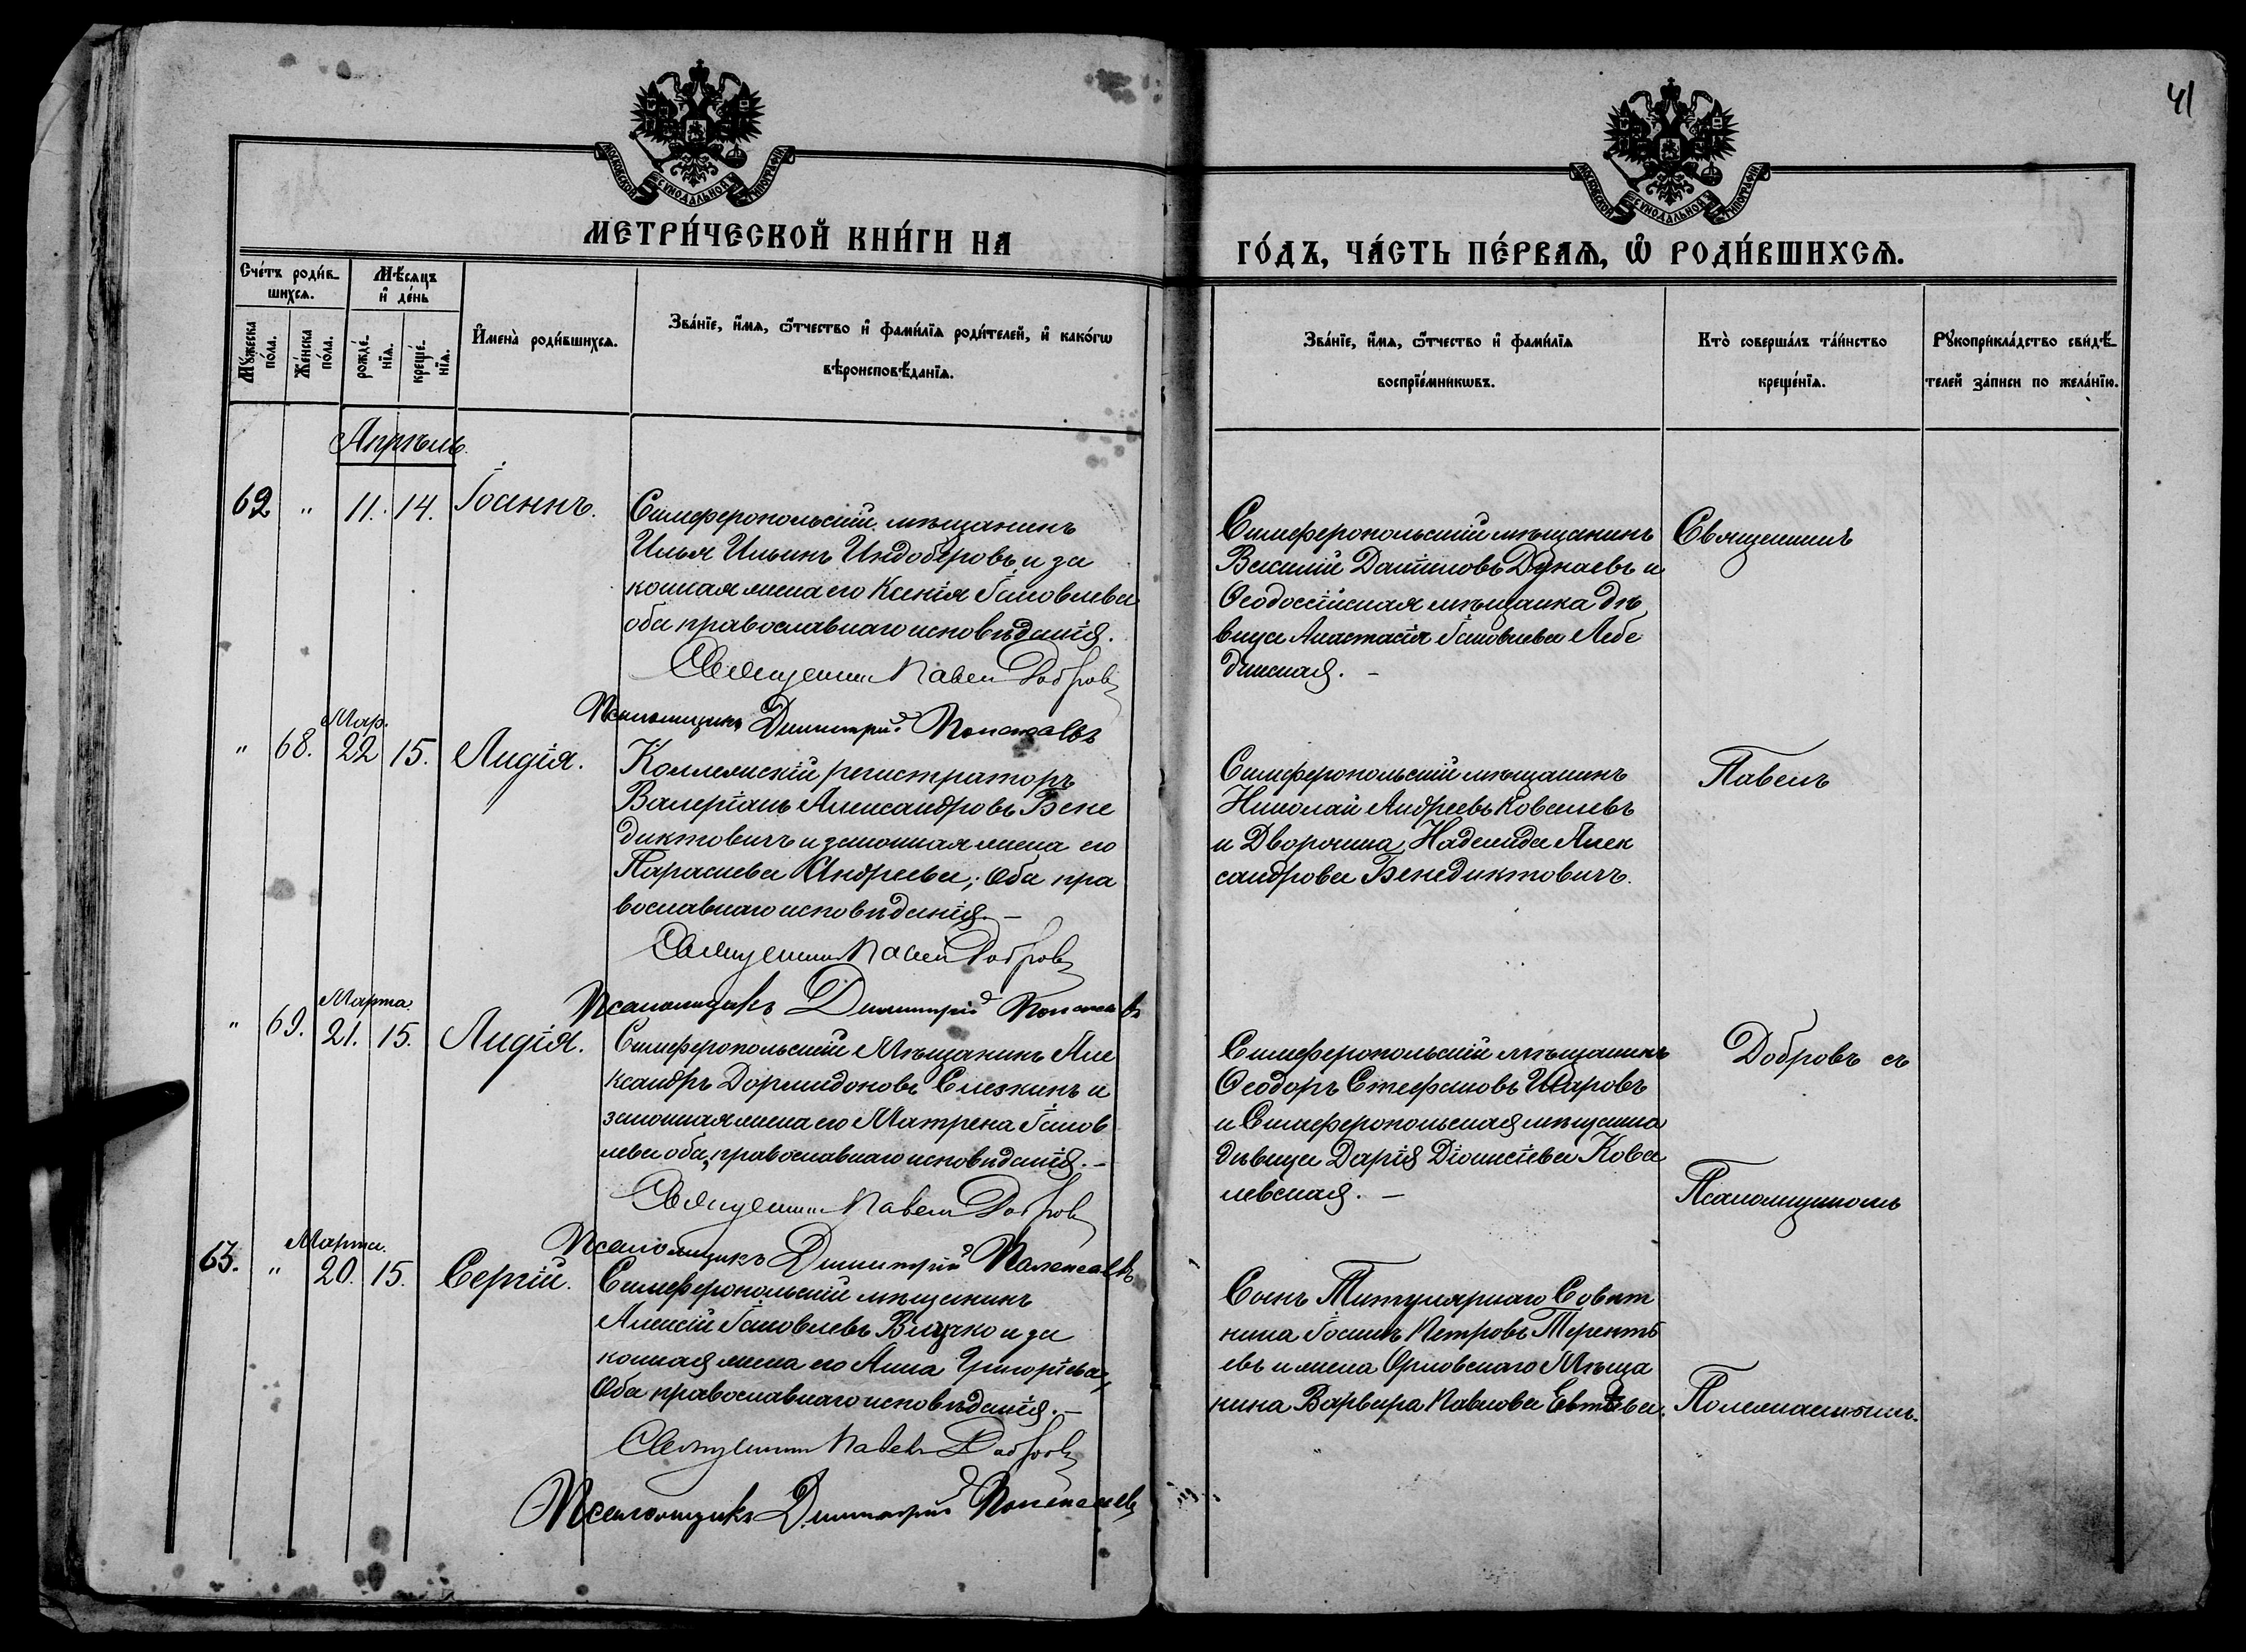 41
МОСКОВСКОЙ СѴНОДАЛЬНОЙ ТИПОГРАФІИ
МОСКОВСКОЙ СѴНОДАЛЬНОЙ ТИПОГРАФІИ
МЕТРИ́ЧЕСКОЙ КНИ́ГИ НА
ГО́ДЪ, ЧА́СТЬ ПЕ́РВАѦ, Ѡ҆ РОДИ́ВШИХСѦ.
Сче́тъ роди́в-
шихсѧ.
Мѣ́сѧцъ
и҆ де́нь
Мꙋ́жеска
по́ла.
Же́нска
по́ла.
рожде́-
нїѧ.
креще́-
нїѧ.
И҆мена̀ роди́вшихсѧ.
Зва́нїе, и҆́мѧ, ѻ҆́тчество и҆ фами́лїѧ роди́телей, и҆ како́гѡ
вѣроисповѣ́данїѧ.
Зва́нїе, и҆́мѧ, ѻ҆́тчество и҆ фами́лїѧ
воспрїе́мникѡвъ.
Кто̀ соверша́лъ та́инство
креще́нїѧ.
Рꙋкоприкла́дство свидѣ́-
телей за́писи по жела́нїю.
Апрѣль.
62 " 11. 14. Іоаннъ.
Симферопольскій мѣщанинъ
Илья Ильинъ Индоберовъ и за
конная жена его Ксенія Іаковлева
оба православнаго исповѣданія.
Священникъ Павелъ Добровъ
Псаломщикъ Димитрій
Симферопольскій мѣщанинъ
Василій Даниловъ Дунаевъ и
Ѳеодоссійская мѣщанка дѣ
вица Анастасія Іаковлева Лебе
динская. -
Священникъ
Мар.
" 68. 22 15. Лидія.
Коллежскій регистраторъ
Валеріанъ Александровъ Бене
диктовичъ и законная жена его
Параскева Андреева; Оба пра
вославнаго исповѣданія. -
Священникъ Павелъ Добровъ
Псаломщикъ Димитрій
Симферопольскій мѣщанинъ
Николай Андреевъ Ковалевъ
и Дворянка Надежда Алек
сандрова Бенедиктовичъ.
Павелъ
Марта.
" 69. 21. 15. Лидія.
Симферопольскій Мѣщанинъ Але
ксандръ Дормидоновъ Слезкинъ и
законная жена его Матрена Іаков
лева оба православнаго исповѣданія. -
Священникъ Павелъ Добровъ
Псаломщикъ Димитрій
Симферопольскій мѣщанинъ
Ѳеодоръ Стефановъ Шаровъ
и Симферопольская мѣщанка
дѣвица Дарія Діонисіева Кова
левская. -
Добровъ съ
Псаломщикомъ
Марта.
63. " 20. 15. Сергій.
Симферопольскій мѣщанинъ
Алексій Іаковлевъ Величко и за
конная жена его Анна Григоріева,
Оба православнаго исповѣданія. -
Священникъ Павелъ Добровъ
Псаломщикъ Димитрій
Сынъ Титулярнаго Совѣт
ника Іоаннъ Петровъ Терентѣ
евъ и жена Орловскаго Мѣща
нина Варвара Павлова Евтѣева.